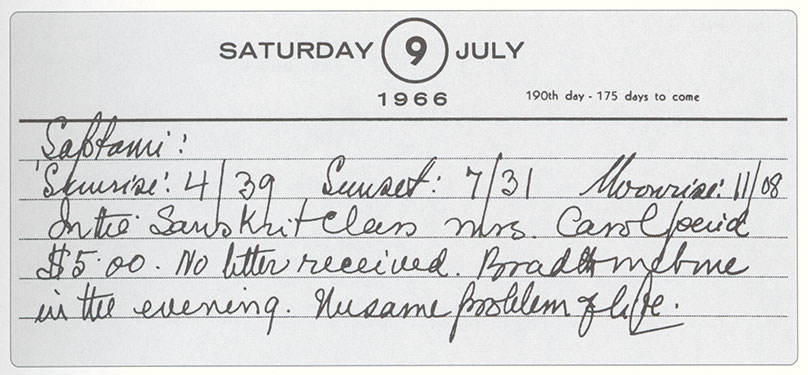 SATURDAY 9 JULY
1966
190th day - 175 days to come
'Saptami':
'Sunrise': 4/39 Sunset: 7/31 Moonrise: 11/08
In the Sanskrit Class Mrs. Carol paid
$5.00. No letter received.
in the evening. same problem of life.